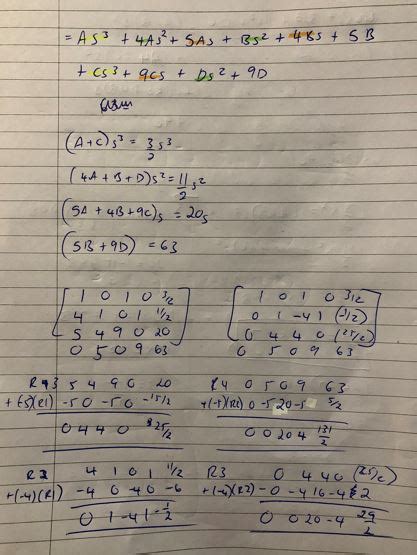 = As³ + 4As² + 5As + Bs² + 4Bs + 5B
+ Cs³ + 9Cs + Ds² + 9D
(A+C)s³ = 3/2 s³
(4A + B + D)s² = 11/2 s²
(5A + 4B + 9C)s = 20s
(5B + 9D) = 63
1 0 1 0 3/2
4 1 0 1 11/2
5 4 9 0 20
0 5 0 9 63
1 0 1 0 3/2
0 1 -4 1 (-1/2)
0 4 4 0 (25/2)
0 5 0 9 63
R3 5 4 9 0 20
+(-5)(R1) -5 0 -5 0 -15/2
0 4 4 0 25/2
R4 0 5 0 9 63
+(-5)(R2) 0 -5 20 -5 5/2
0 0 20 4 131/2
R2 4 1 0 1 11/2
+(-4)(R1) -4 0 -4 0 -6
0 1 -4 1 -1/2
R3 0 4 4 0 (25/2)
+(-4)(R2) -0 -4 16 -4 2
0 0 20 -4 29/2